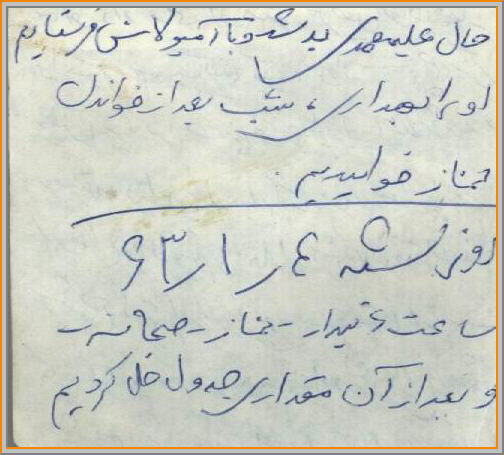 حال علیمحمدی بد شد و با آمبولانس فرستادیم
او را بهداری، شب بعد از خواندن
نماز خوابیدیم.
روز شنبه ۴ر۱ر۶۳
ساعت ۶ بیدار - نماز - صبحانه -
و بعد از آن مقداری جدول حل کردیم